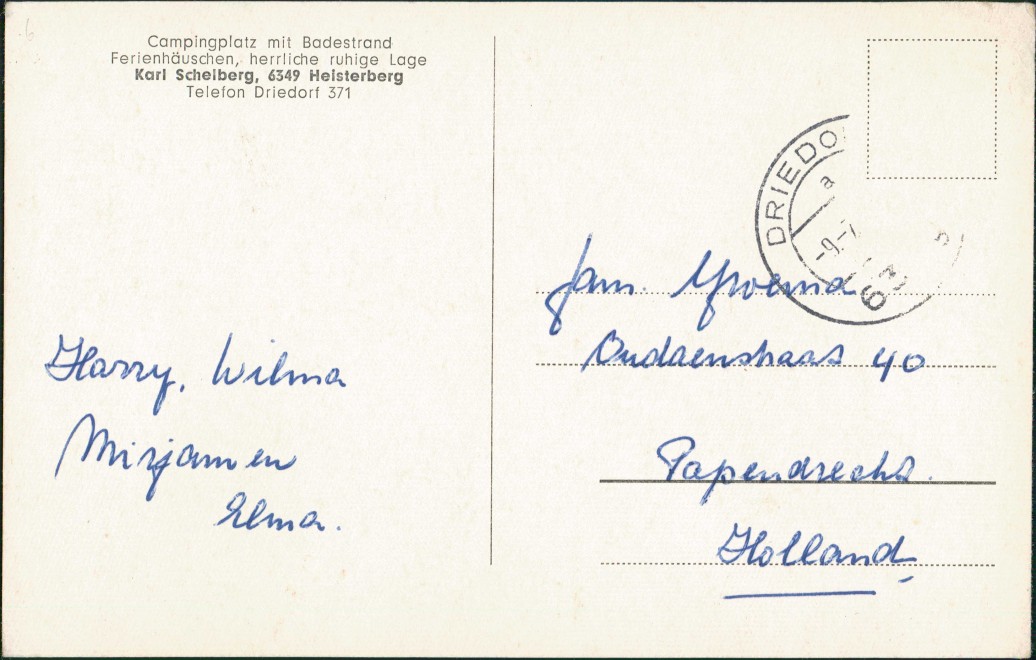 Campingplatz mit Badestrand
Ferienhäuschen, herrliche ruhige Lage
Karl Schelberg, 6349 Heisterberg
Telefon Driedorf 371
DRIEDO
a
-9.-7
63
Harry, Wilma
Mirjam en
Elma.
Fam.
Oudaenstraat 40
Papendrecht.
Holland